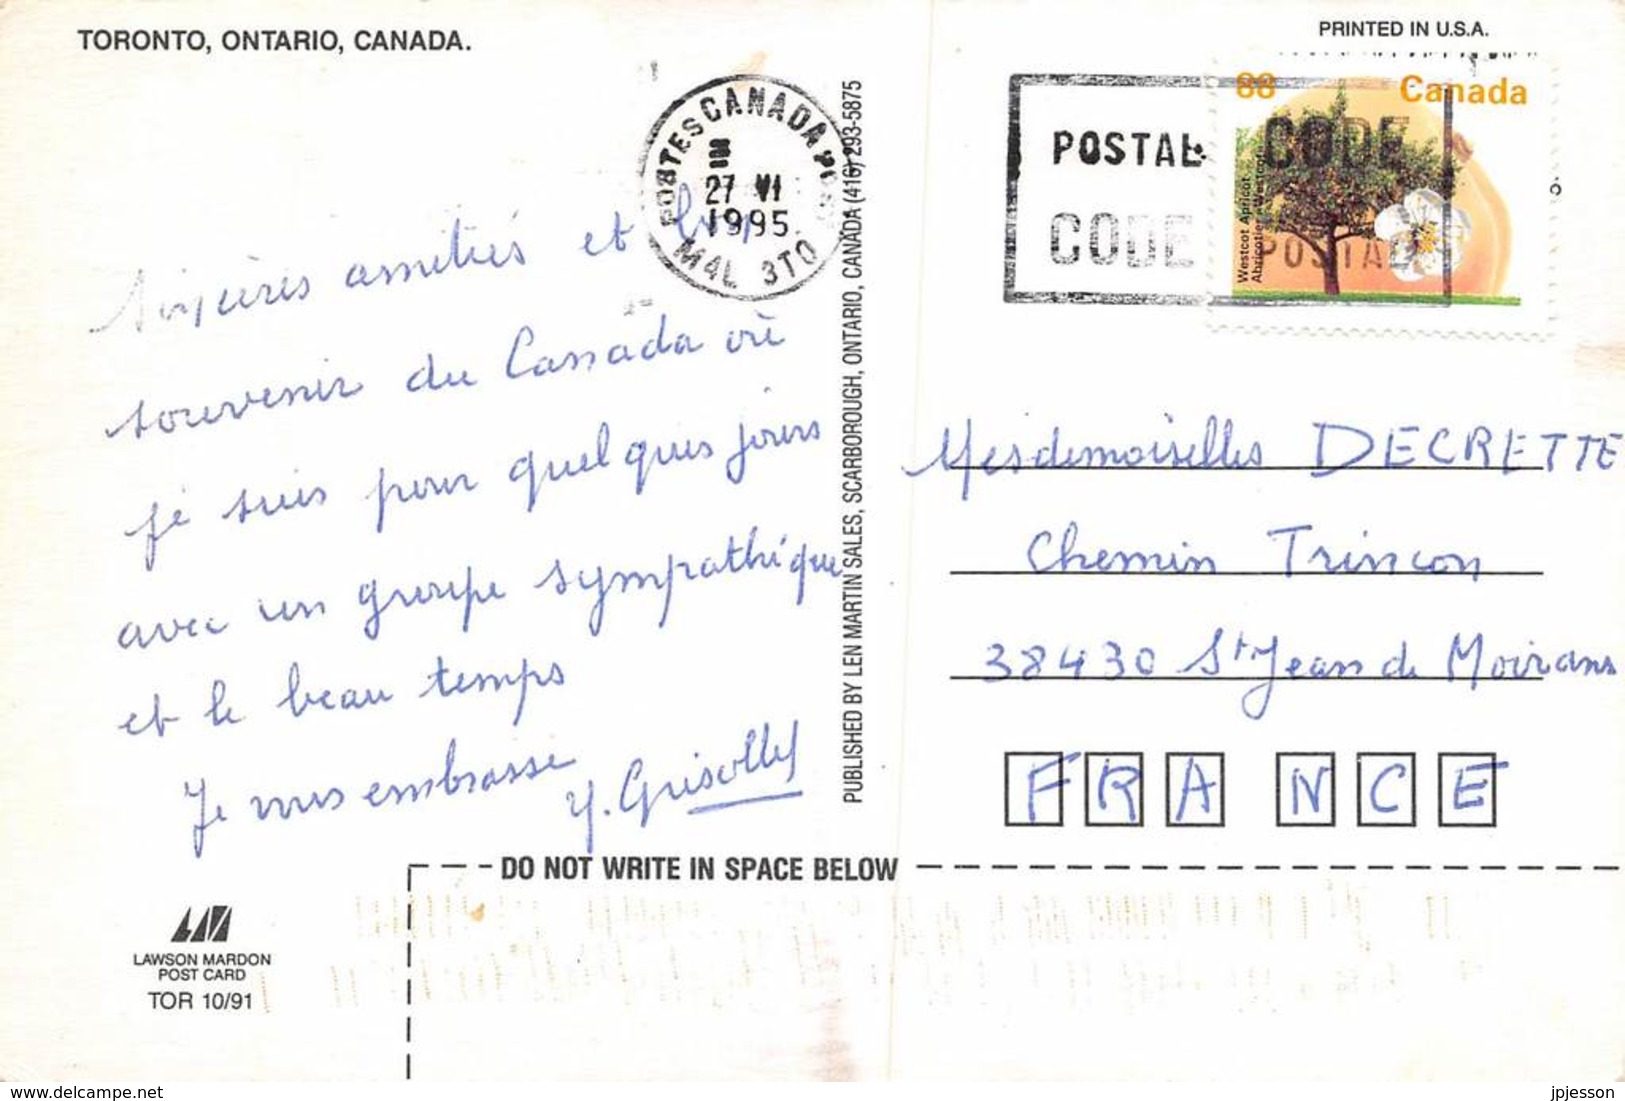 TORONTO, ONTARIO, CANADA.
PRINTED IN U.S.A.
POSTES CANADA POST
27 VI
1995
M4L 3T0
POSTAL CODE
CODE POSTAL
88 Canada
Westcot Apricot
Abricotier «Westcot»
Sincères amitiés et bon
souvenir du Canada où
je suis pour quelques jours
avec un groupe sympathique
et le beau temps
Je vous embrasse
Y. Grisolles
PUBLISHED BY LEN MARTIN SALES, SCARBOROUGH, ONTARIO, CANADA (416) 293-5875
Mesdemoiselles DECRETTE
Chemin Trincon
38430 St Jean de Moirans
FRANCE
DO NOT WRITE IN SPACE BELOW
LAWSON MARDON
POST CARD
TOR 10/91
www.delcampe.net
jpjesson